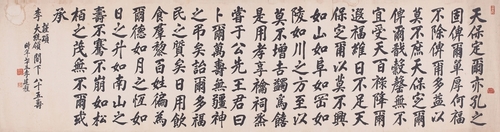 天保定爾亦孔之
固俾爾單厚何福
不除俾爾多益以
莫不庶天保定爾
俾爾戩穀罄無不
宜受天百祿降爾
遐福維日不足天
保定爾以莫不興
如山如阜如岡如
陵如川之方至以
莫不增吉蠲為饎
是用孝享禴祠烝
嘗于公先王君曰
卜爾萬壽無疆神
之弔矣詒爾多福
民之質矣日用飲
食群黎百姓徧為
爾德如月之恆如
日之升如南山之
壽不騫不崩如松
柏之茂無不爾或
承
李大統領閣下八十五壽